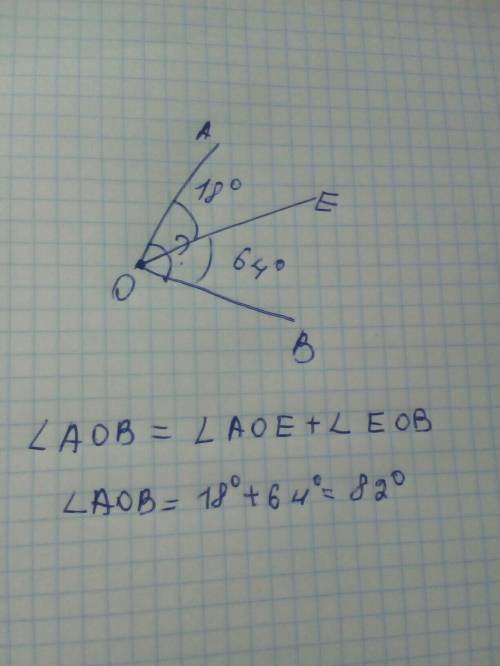 A
18°
E
?
64°
O
B
∠AOB = ∠AOE + ∠EOB
∠AOB = 18° + 64° = 82°